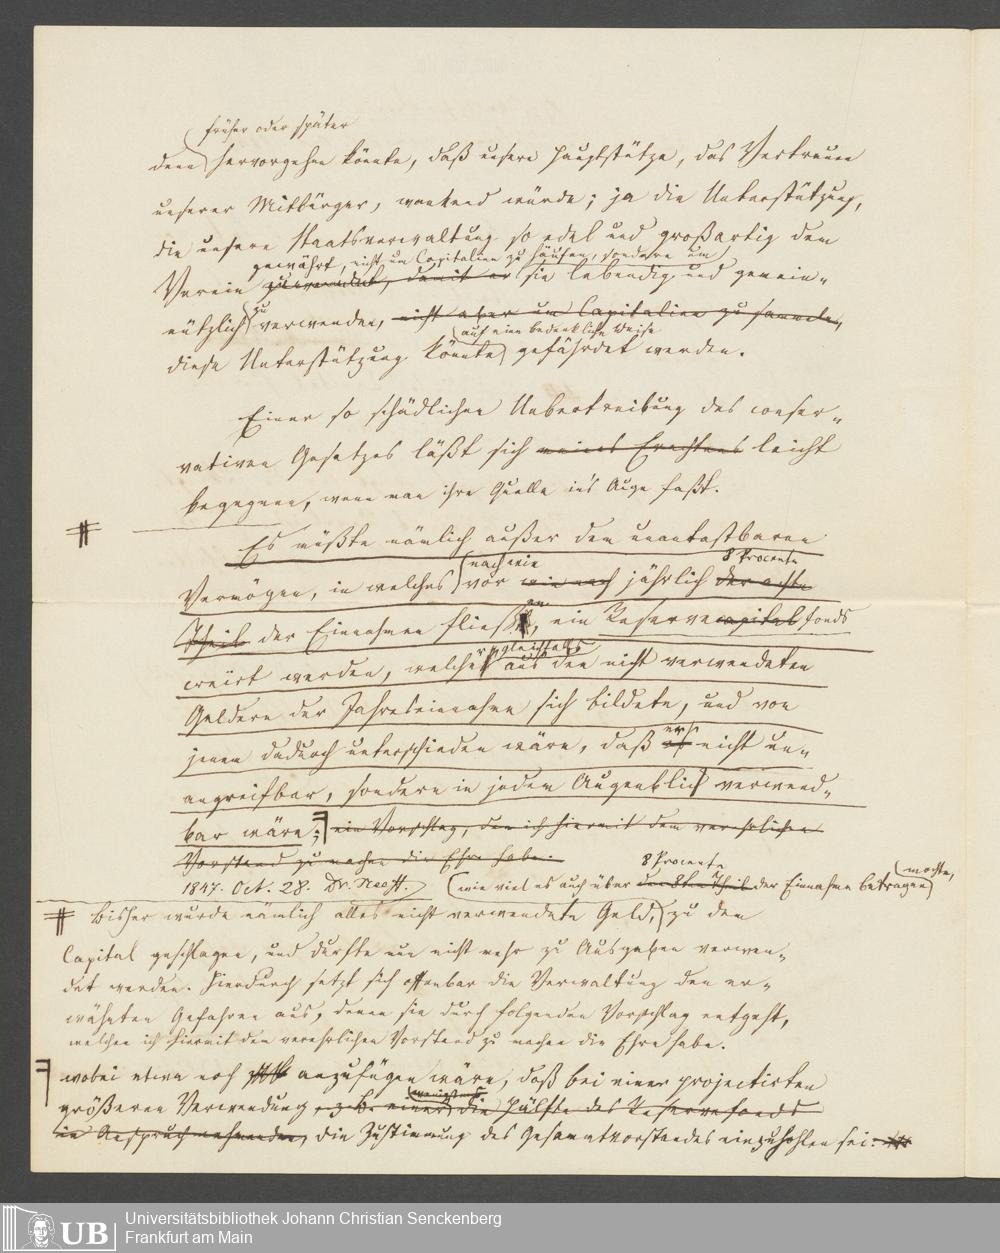 früher oder später
dem hervorgehen könnte, daß unsere Hauptstütze, das Vertrauen
unserer Mitbürger, wankend würde; ja die Unterstützung,
die unsere Staatsverwaltung so edel und großartig dem
gewährt, nicht um Capitalien zu häufen, sondern um
Verein damit er sie lebendig und gemein-
zu
nützlich verwenden, nicht aber um Capitalien zu sammeln,
auf eine bedenkliche Weise
diese Unterstützung könnte gefährdet werden.
Einer so schädlichen Uebertreibung des conser-
vativen Gesetzes läßt sich meines Erachtens leicht
begegnen, wenn man ihre Quelle in's Auge faßt.
Es müßte nämlich außer dem unantastbaren
nach wie 8 Procente
Vermögen, in welches vor wie nach jährlich der achte
Theil der Einnahmen fließen, ein Reservecapital fonds
gleichfalls
creirt werden, welcher aus den nicht verwendeten
Geldern der Jahreseinnahme sich bildete, und von
er
jenem dadurch unterschieden wäre, daß es nicht un-
angreifbar, sondern in jedem Augenblick verwend-
bar wäre; ein Vorschlag, den ich hiermit dem verehrlichen
Vorstand zu machen die Ehre habe.
8 Procente
1847. Oct. 28. Dr. Neeff. (wie viel es auch über den 8ten Theil der Einnahme betragen mochte,)
Bisher wurde nämlich alles nicht verwendete Geld, zu dem
Capital geschlagen, und durfte nun nicht mehr zu Ausgaben verwen-
det werden. Hierdurch setzt sich offenbar die Verwaltung den er-
wähnten Gefahren aus, denen sie durch folgenden Vorschlag entgeht,
welchen ich hiermit dem verehrlichen Vorstand zu machen die Ehre habe.
wobei etwa noch anzufügen wäre, daß bei einer projectirten
wenigstens
größeren Verwendung, z. B. einer die Hälfte des Reservefonds
in Anspruch nehmenden, die Zustimmung des Gesammtvorstandes einzuholen sei.
UB
Universitätsbibliothek Johann Christian Senckenberg
Frankfurt am Main